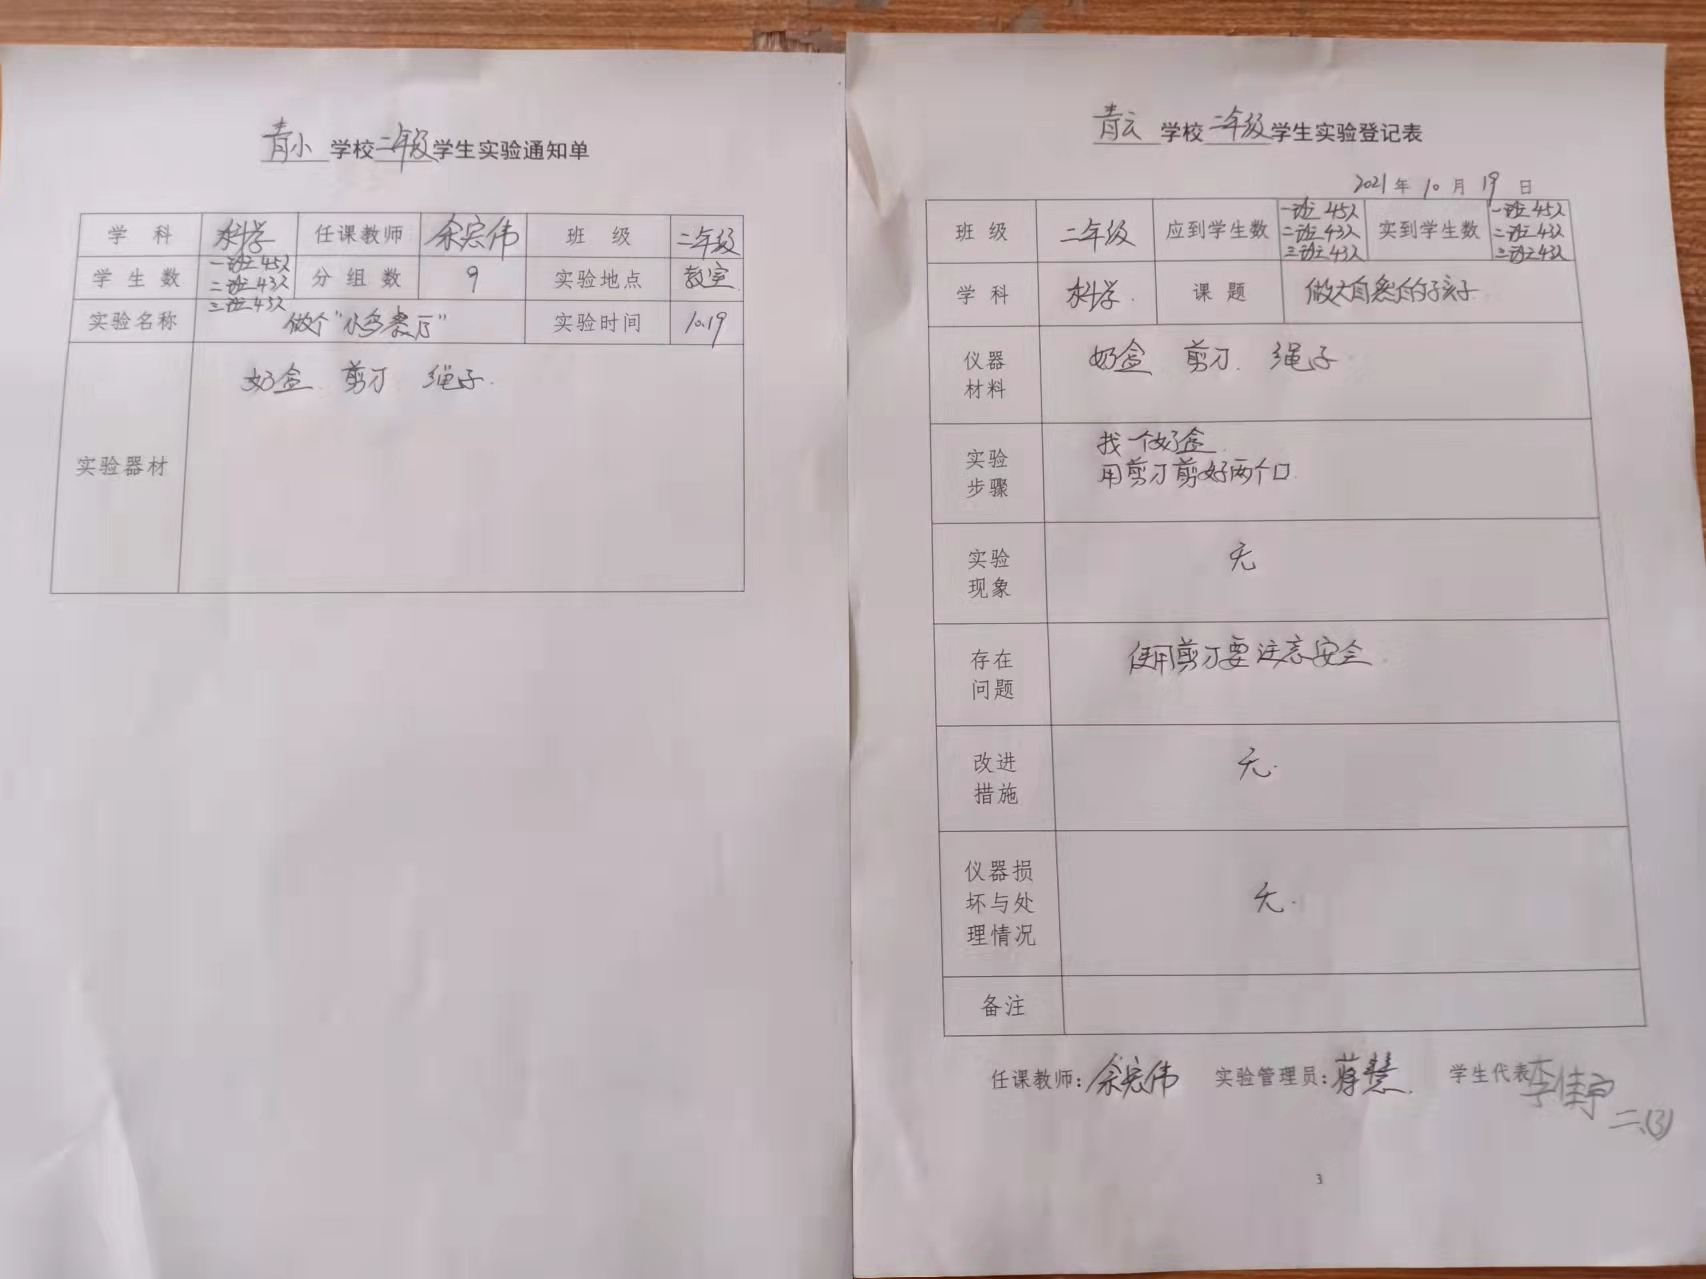 青小 学校二年级学生实验通知单
学 科 科学 任课教师 余宏伟 班 级 二年级
学 生 数 一班45人 二班43人 三班43人 分 组 数 9 实验地点 教室
实验名称 做个“小鸟餐厅” 实验时间 10.19
实验器材 奶盒 剪刀 绳子
青云 学校二年级学生实验登记表
2021年10月19日
班 级 二年级 应到学生数 一班45人 二班43人 三班43人 实到学生数 一班45人 二班43人 三班43人
学 科 科学 课 题 做大自然的孩子
仪器 奶盒 剪刀 绳子
材料
实验 找一个奶盒
步骤 用剪刀剪好两个口
实验 无
现象
存在 使用剪刀要注意安全
问题
改进 无
措施
仪器损
坏与处 无
理情况
备注
任课教师:余宏伟 实验管理员:蒋慧 学生代表 李佳宁
二.(3)
3